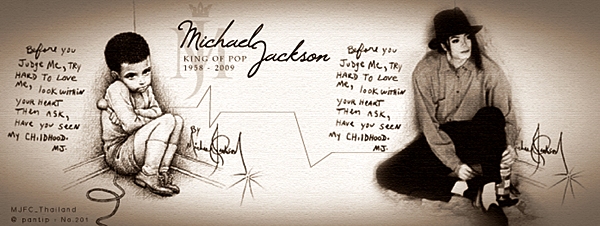 Before you
Judge Me, TRY
HARD TO LOVE
Me, look within
your HEART
Then ASK,
HAVE you Seen
MY CHILDHOOD.
MJ.
Michael Jackson
KING OF POP
1958 - 2009
By
Michael Jackson
Before you
Judge Me, TRY
HARD TO LOVE
Me, look within
your HEART
Then ASK,
HAVE you Seen
MY CHILDHOOD.
MJ.
MJFC_Thailand
@ pantip - No.201